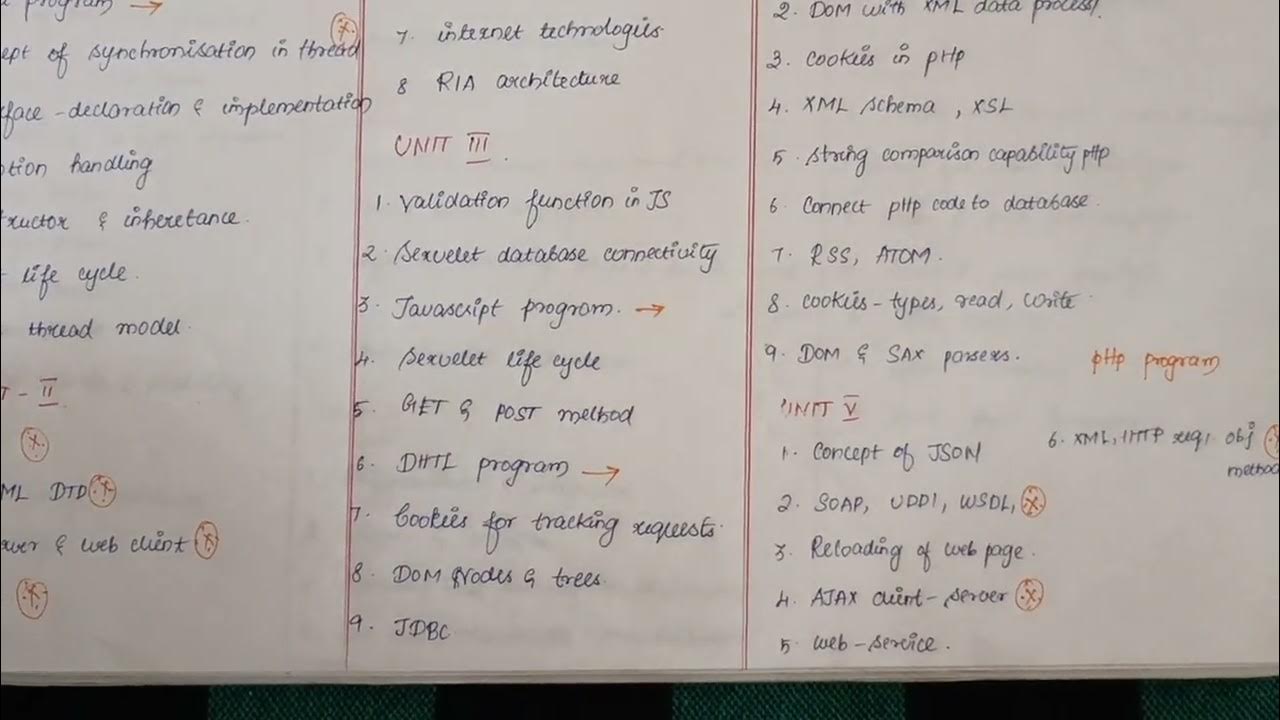 program →
ept of synchronisation in thread
face - declaration & implementation
ption handling
ructor & inheretance.
- life cycle.
thread model.
T - II
ML DTD
ver & web client
7. internet technologies
8 RIA architecture
UNIT III.
1. Validation function in JS
2. Servelet database connectivity
3. Javascript program. →
4. Servelet life cycle
5. GET & POST method
6. DHTL program →
7. Cookies for tracking requests.
8. DOM Nodes & trees.
9. JDBC
2. DOM with XML data process/.
3. Cookies in PHP
4. XML Schema, XSL
5. String comparison capability PHP
6. Connect PHP code to database.
7. RSS, ATOM.
8. cookies - types, read, write.
9. DOM & SAX parsers.
PHP program
UNIT V
1. Concept of JSON
2. SOAP, UDDI, WSDL,
3. Reloading of web page.
4. AJAX client - server
5. web - service.
6. XML, HTTP req. obj
method